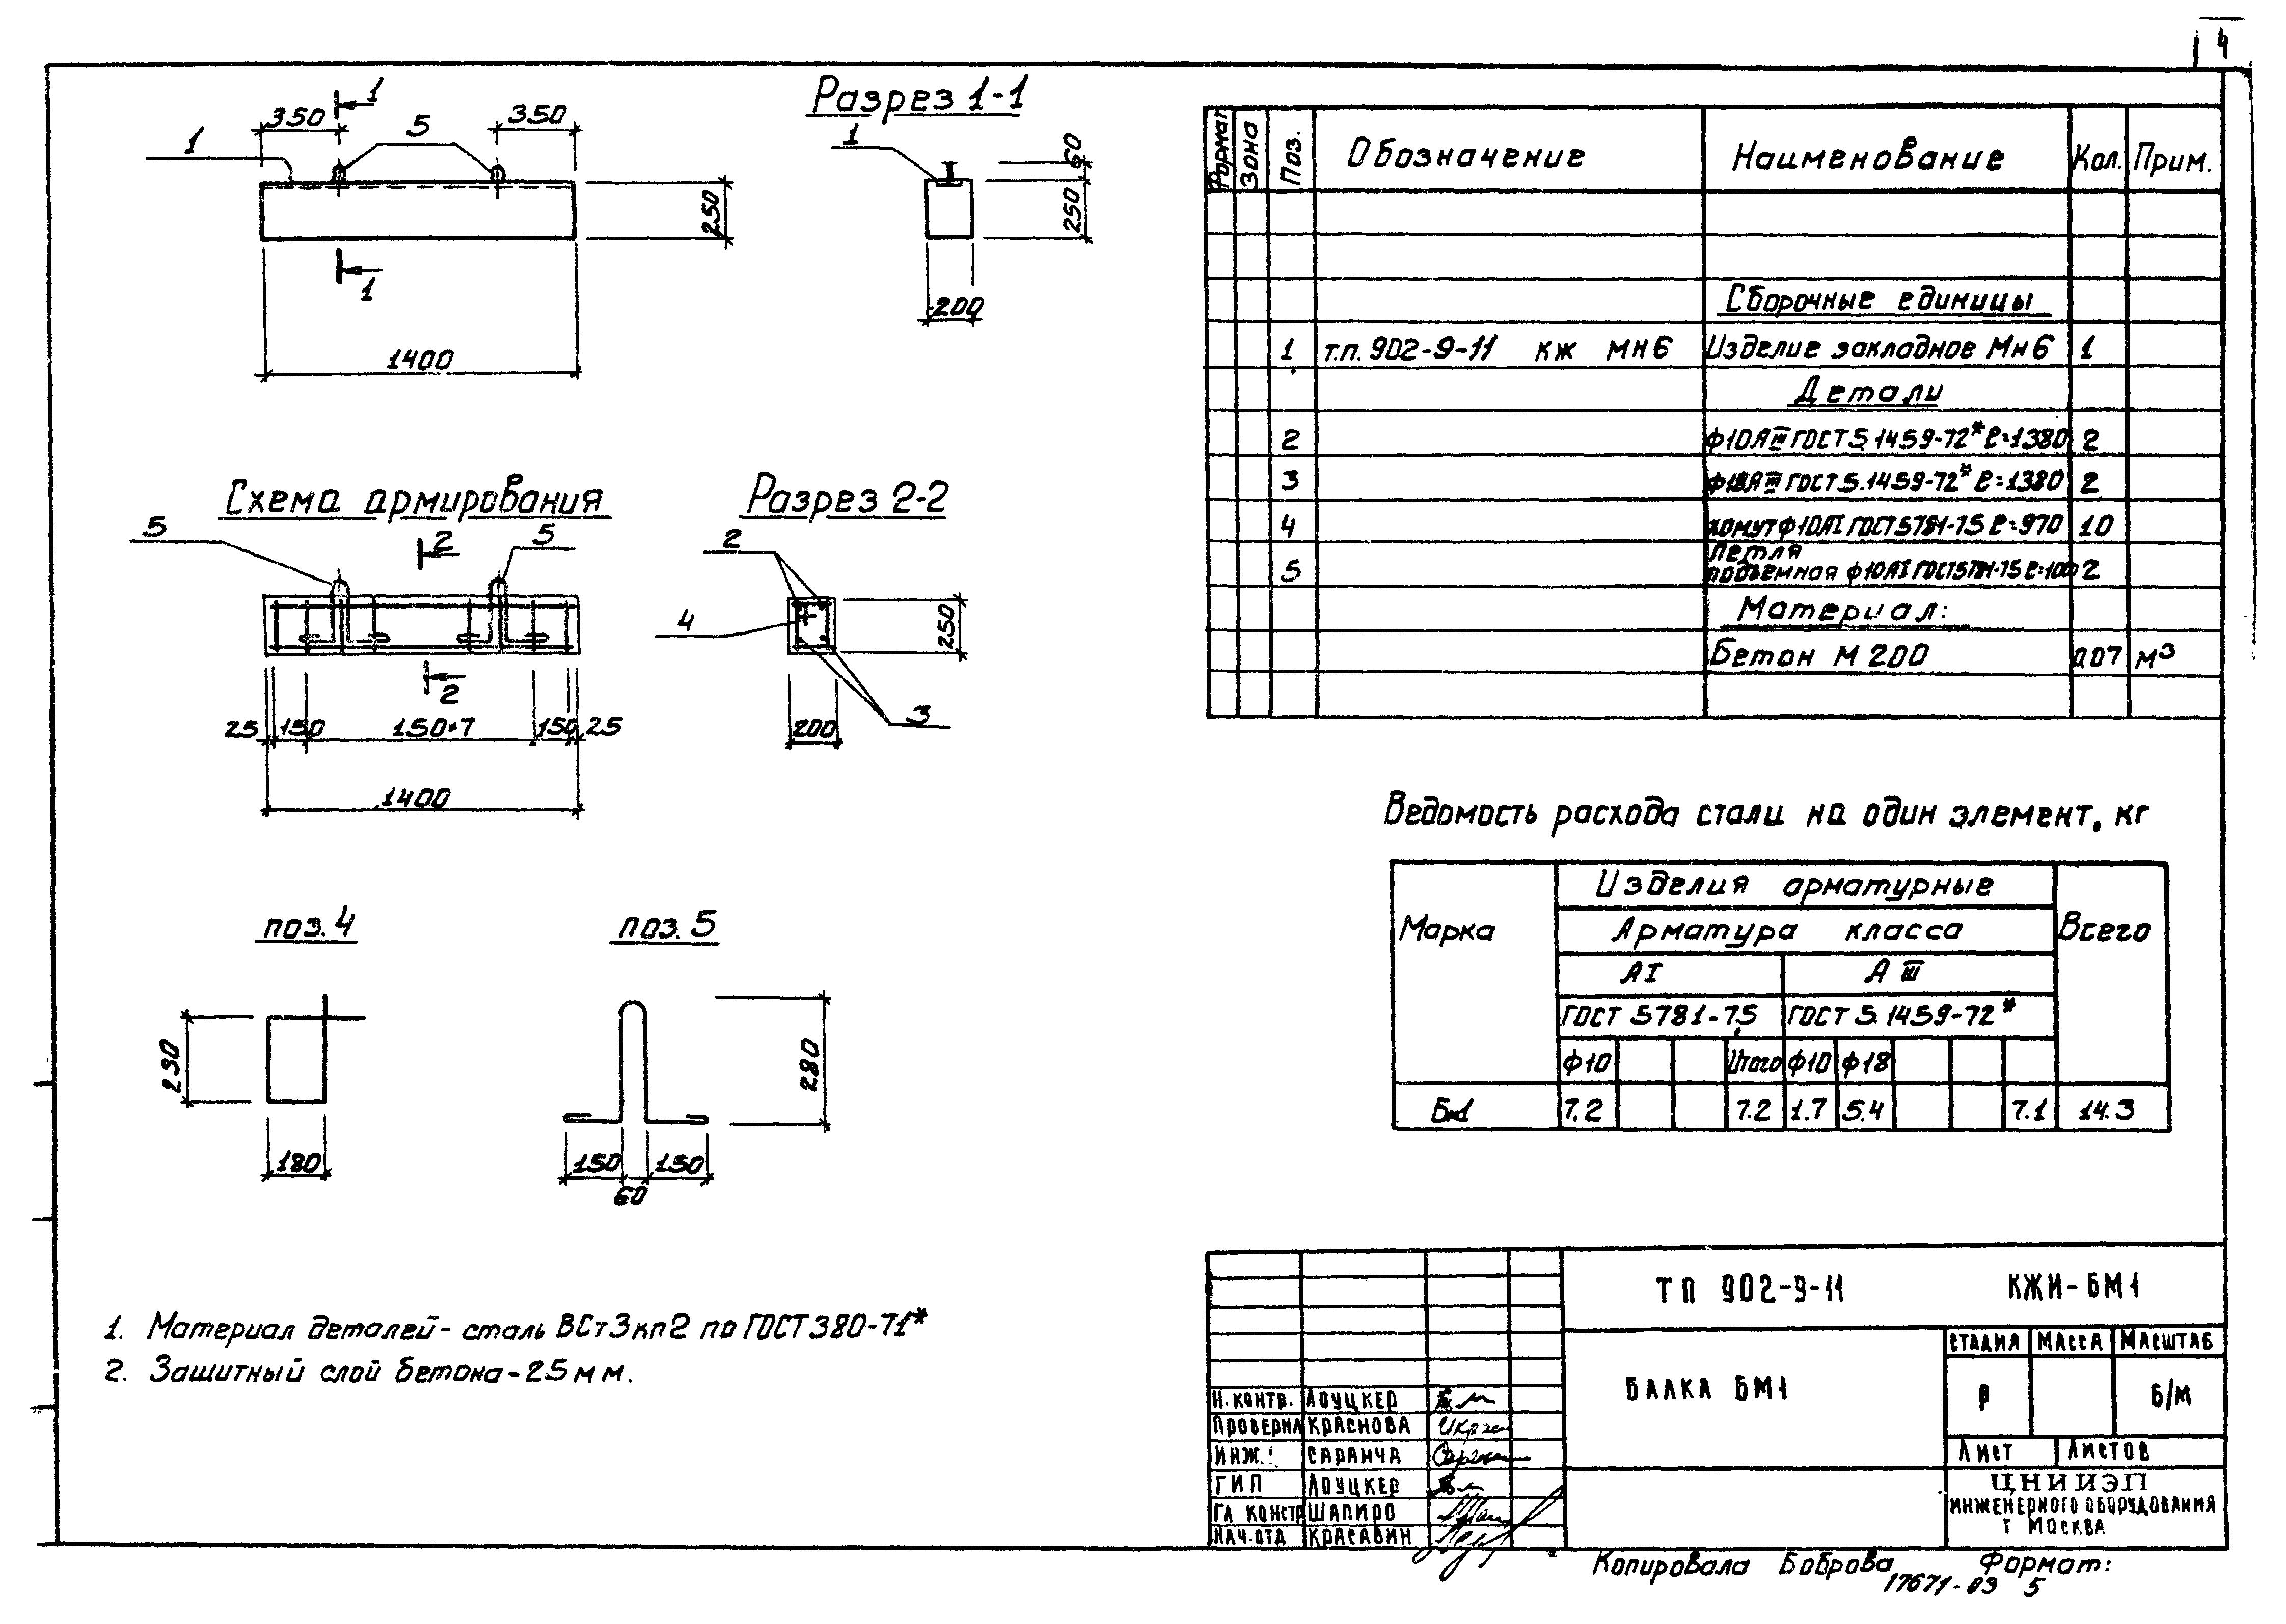 4
1
350
350
5
1
250
1
1400
Разрез 1-1
1
60
250
200
Схема армирования
5
2
5
2
25
150
150×7
150
25
1400
Разрез 2-2
2
4
250
200
3
поз. 4
230
180
поз. 5
280
150
150
60
1. Материал деталей- сталь ВСт3кп2 по ГОСТ 380-71*
2. Защитный слой бетона-25мм.
Формат Зона Поз. Обозначение Наименование Кол. Прим.
Сборочные единицы
1 т.п. 902-9-11 КЖ МН6 Изделие закладное Мн6 1
Детали
2 ф10АIII ГОСТ 5.1459-72* ℓ=1380 2
3 ф18АIII ГОСТ 5.1459-72* ℓ=1380 2
4 хомут ф10АI ГОСТ 5781-75 ℓ=970 10
Петля
5 подъемная ф10АI ГОСТ 5781-75 2
Материал:
Бетон М 200 0.07 м3
Ведомость расхода стали на один элемент, кг
Марка
Изделия арматурные
Всего
Арматура класса
АI АIII
ГОСТ 5781-75 ГОСТ 5.1459-72*
ф10 Итого ф10 ф18
Бм1 7.2 7.2 1.7 5.4 7.1 14.3
ТП 902-9-11 КЖИ-БМ1
БАЛКА БМ1
СТАДИЯ МАССА МАСШТАБ
Р Б/М
Лист Листов
ЦНИИЭП
ИНЖЕНЕРНОГО ОБОРУДОВАНИЯ
Г МОСКВА
Н.КОНТР. ЛОУЦКЕР
ПРОВЕРИЛ КРАСНОВА
ИНЖ. САРАНЧА
ГИП ЛОУЦКЕР
ГЛ КОНСТР ШАПИРО
НАЧ.ОТД КРАСАВИН
Копировала Боброва Формат:
17671-03 5